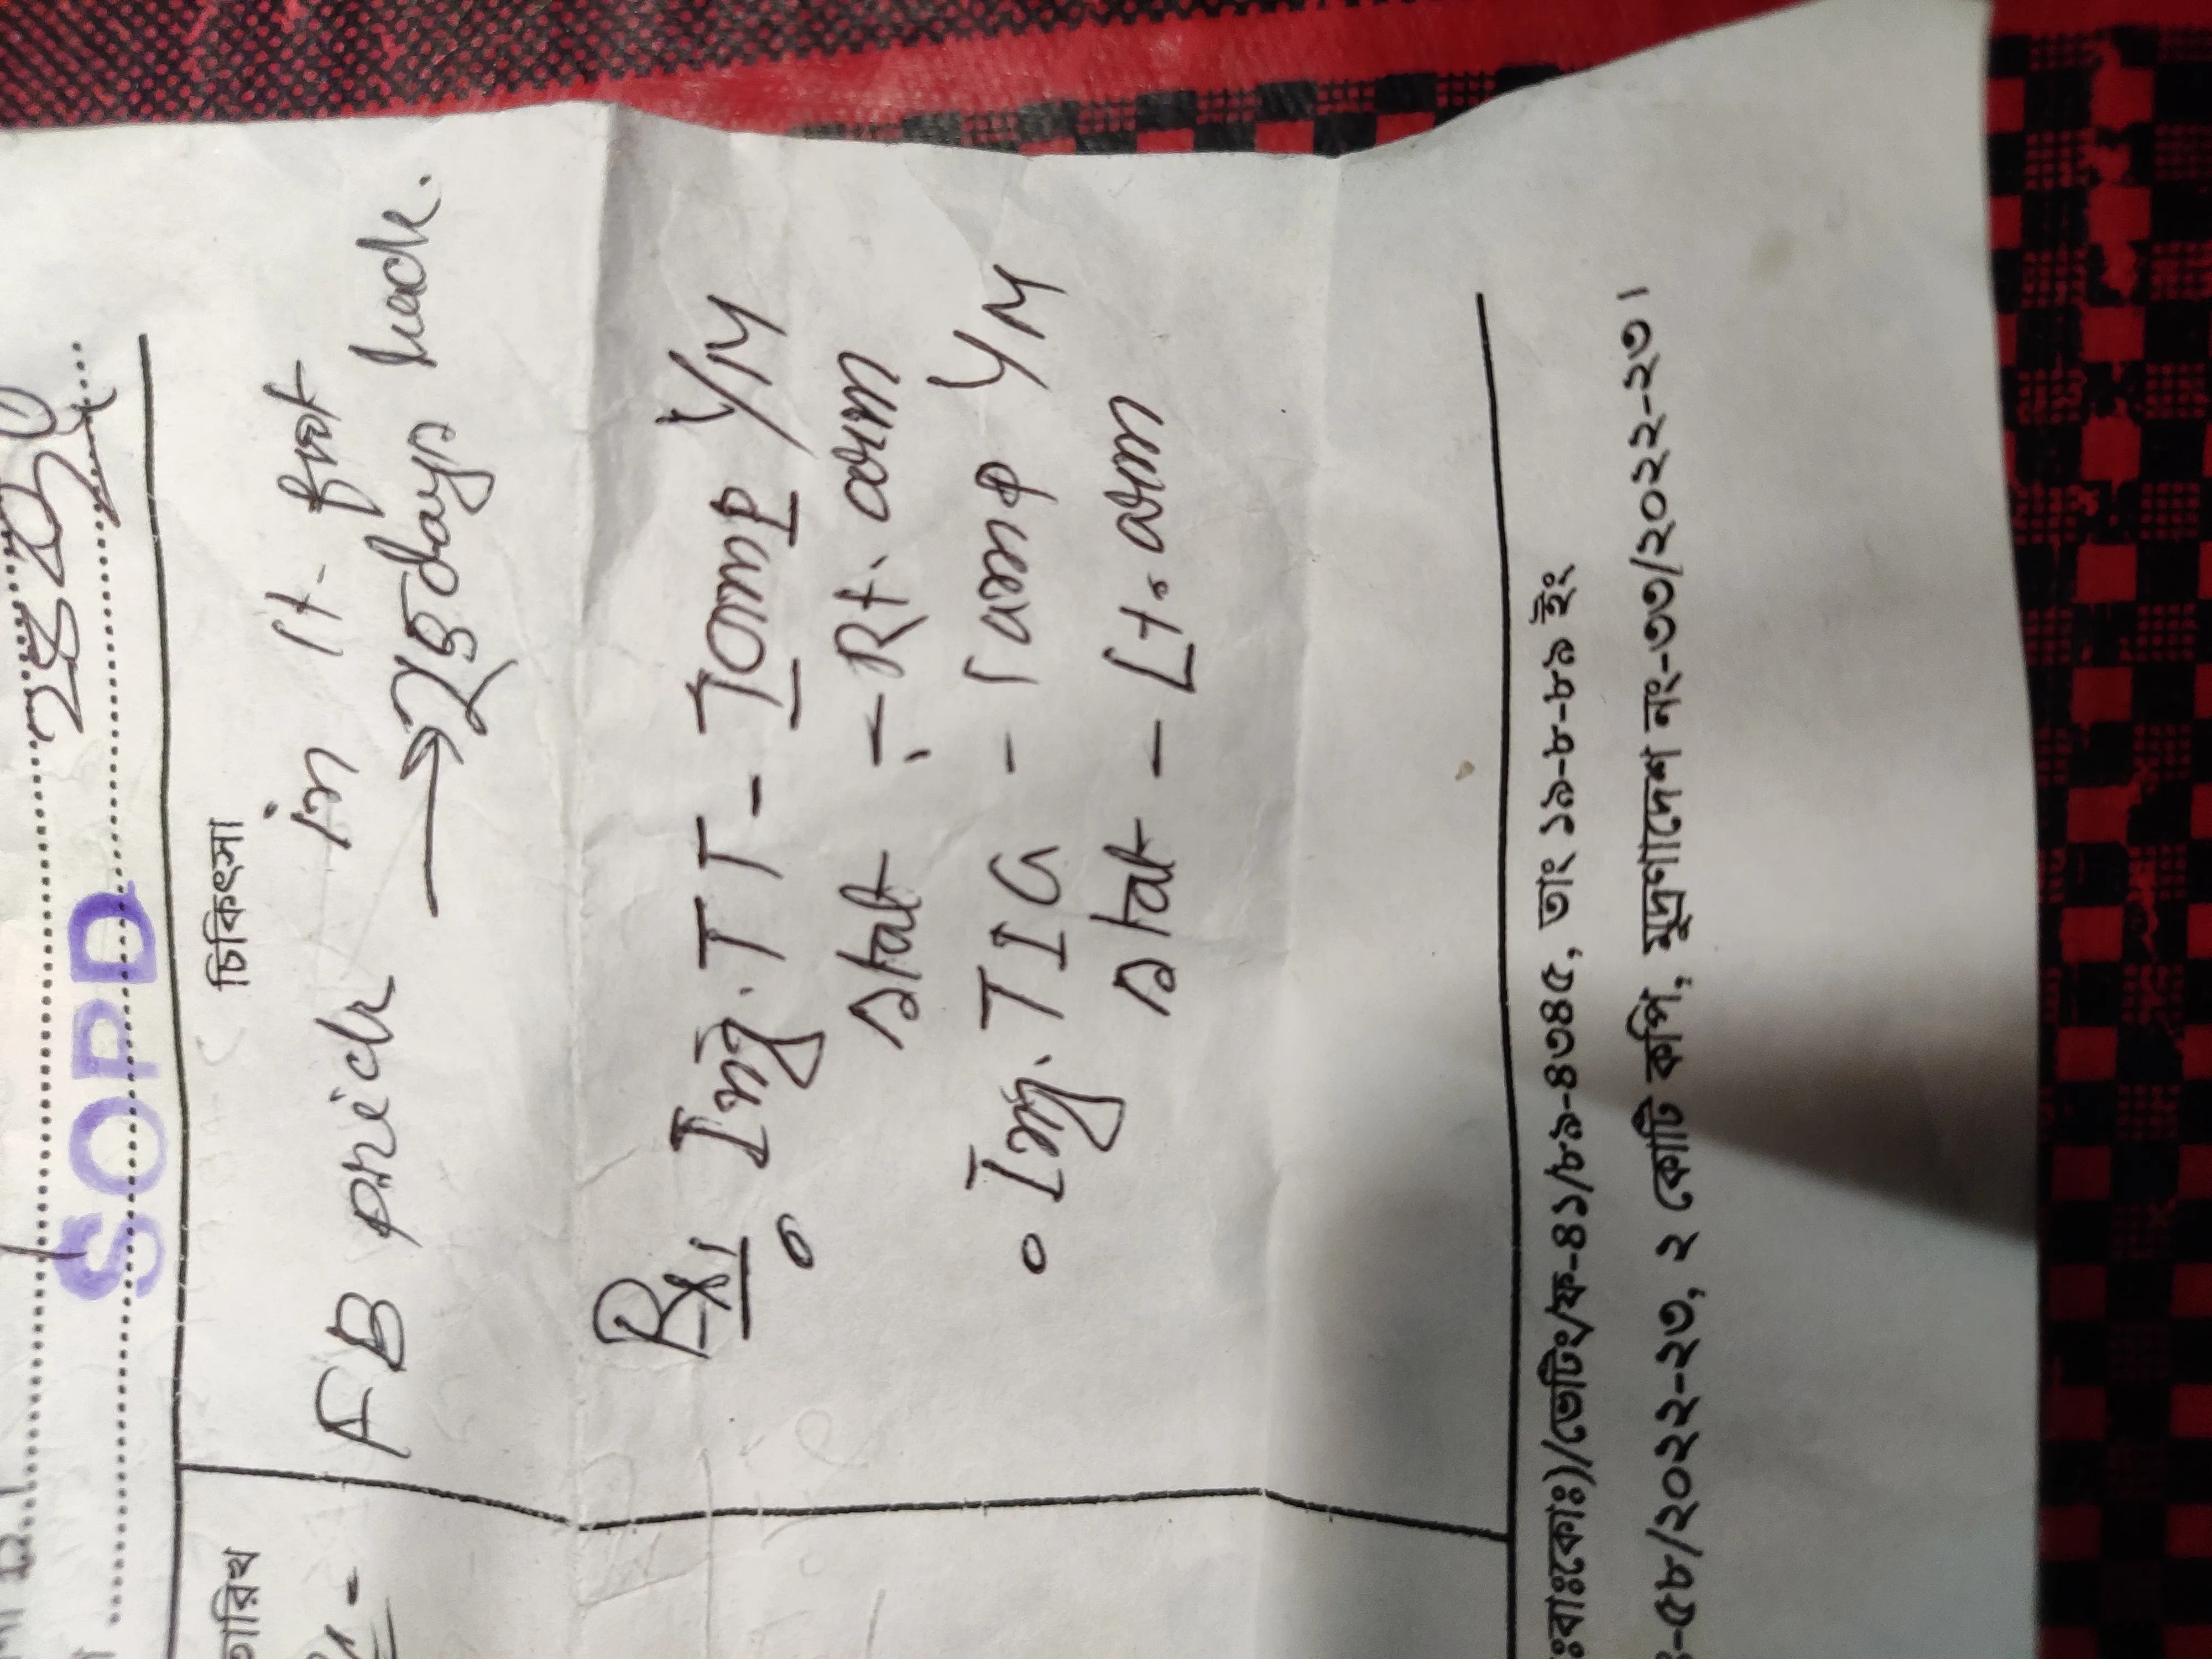 SOPD
তারিখ
চিকিৎসা
FB prick in lt. foot
→ days back.
Rx
Inj. TT - 1 amp I/M
stat - Rt. arm
Inj. TIG - 1 amp I/M
stat - Lt. arm
ঃবাঃকোঃ)/ভেটিং/ফ-৪১/৮৯-৪৩৪৫, তাং ১৯-৮-৮৯ ইং
-৫৮/২০২২-২৩, ২ কোটি কপি, মুদ্রণাদেশ নং-৩৩/২০২২-২৩।